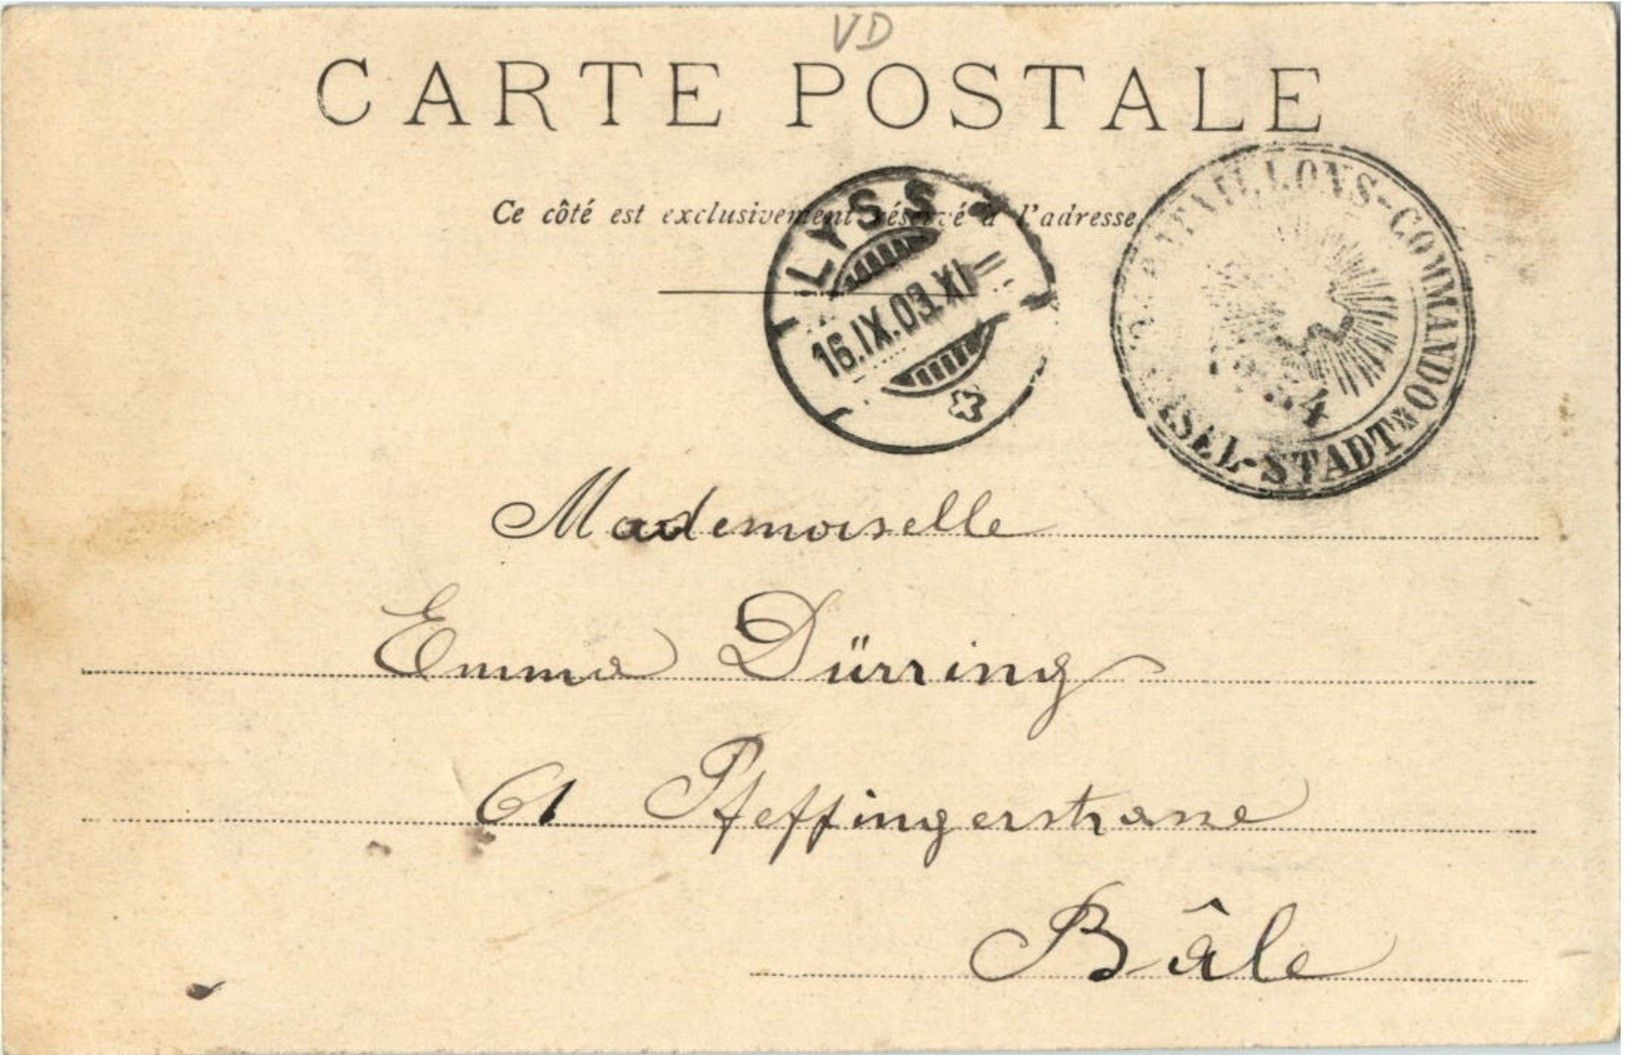 VD
CARTE POSTALE
Ce côté est exclusivement réservé à l'adresse
LYSS
16.IX.03.XI
BATAILLONS-COMMANDO
BASEL-STADT
Mademoiselle
Emma Dürring
61 Pfeffingerstrasse
Bâle